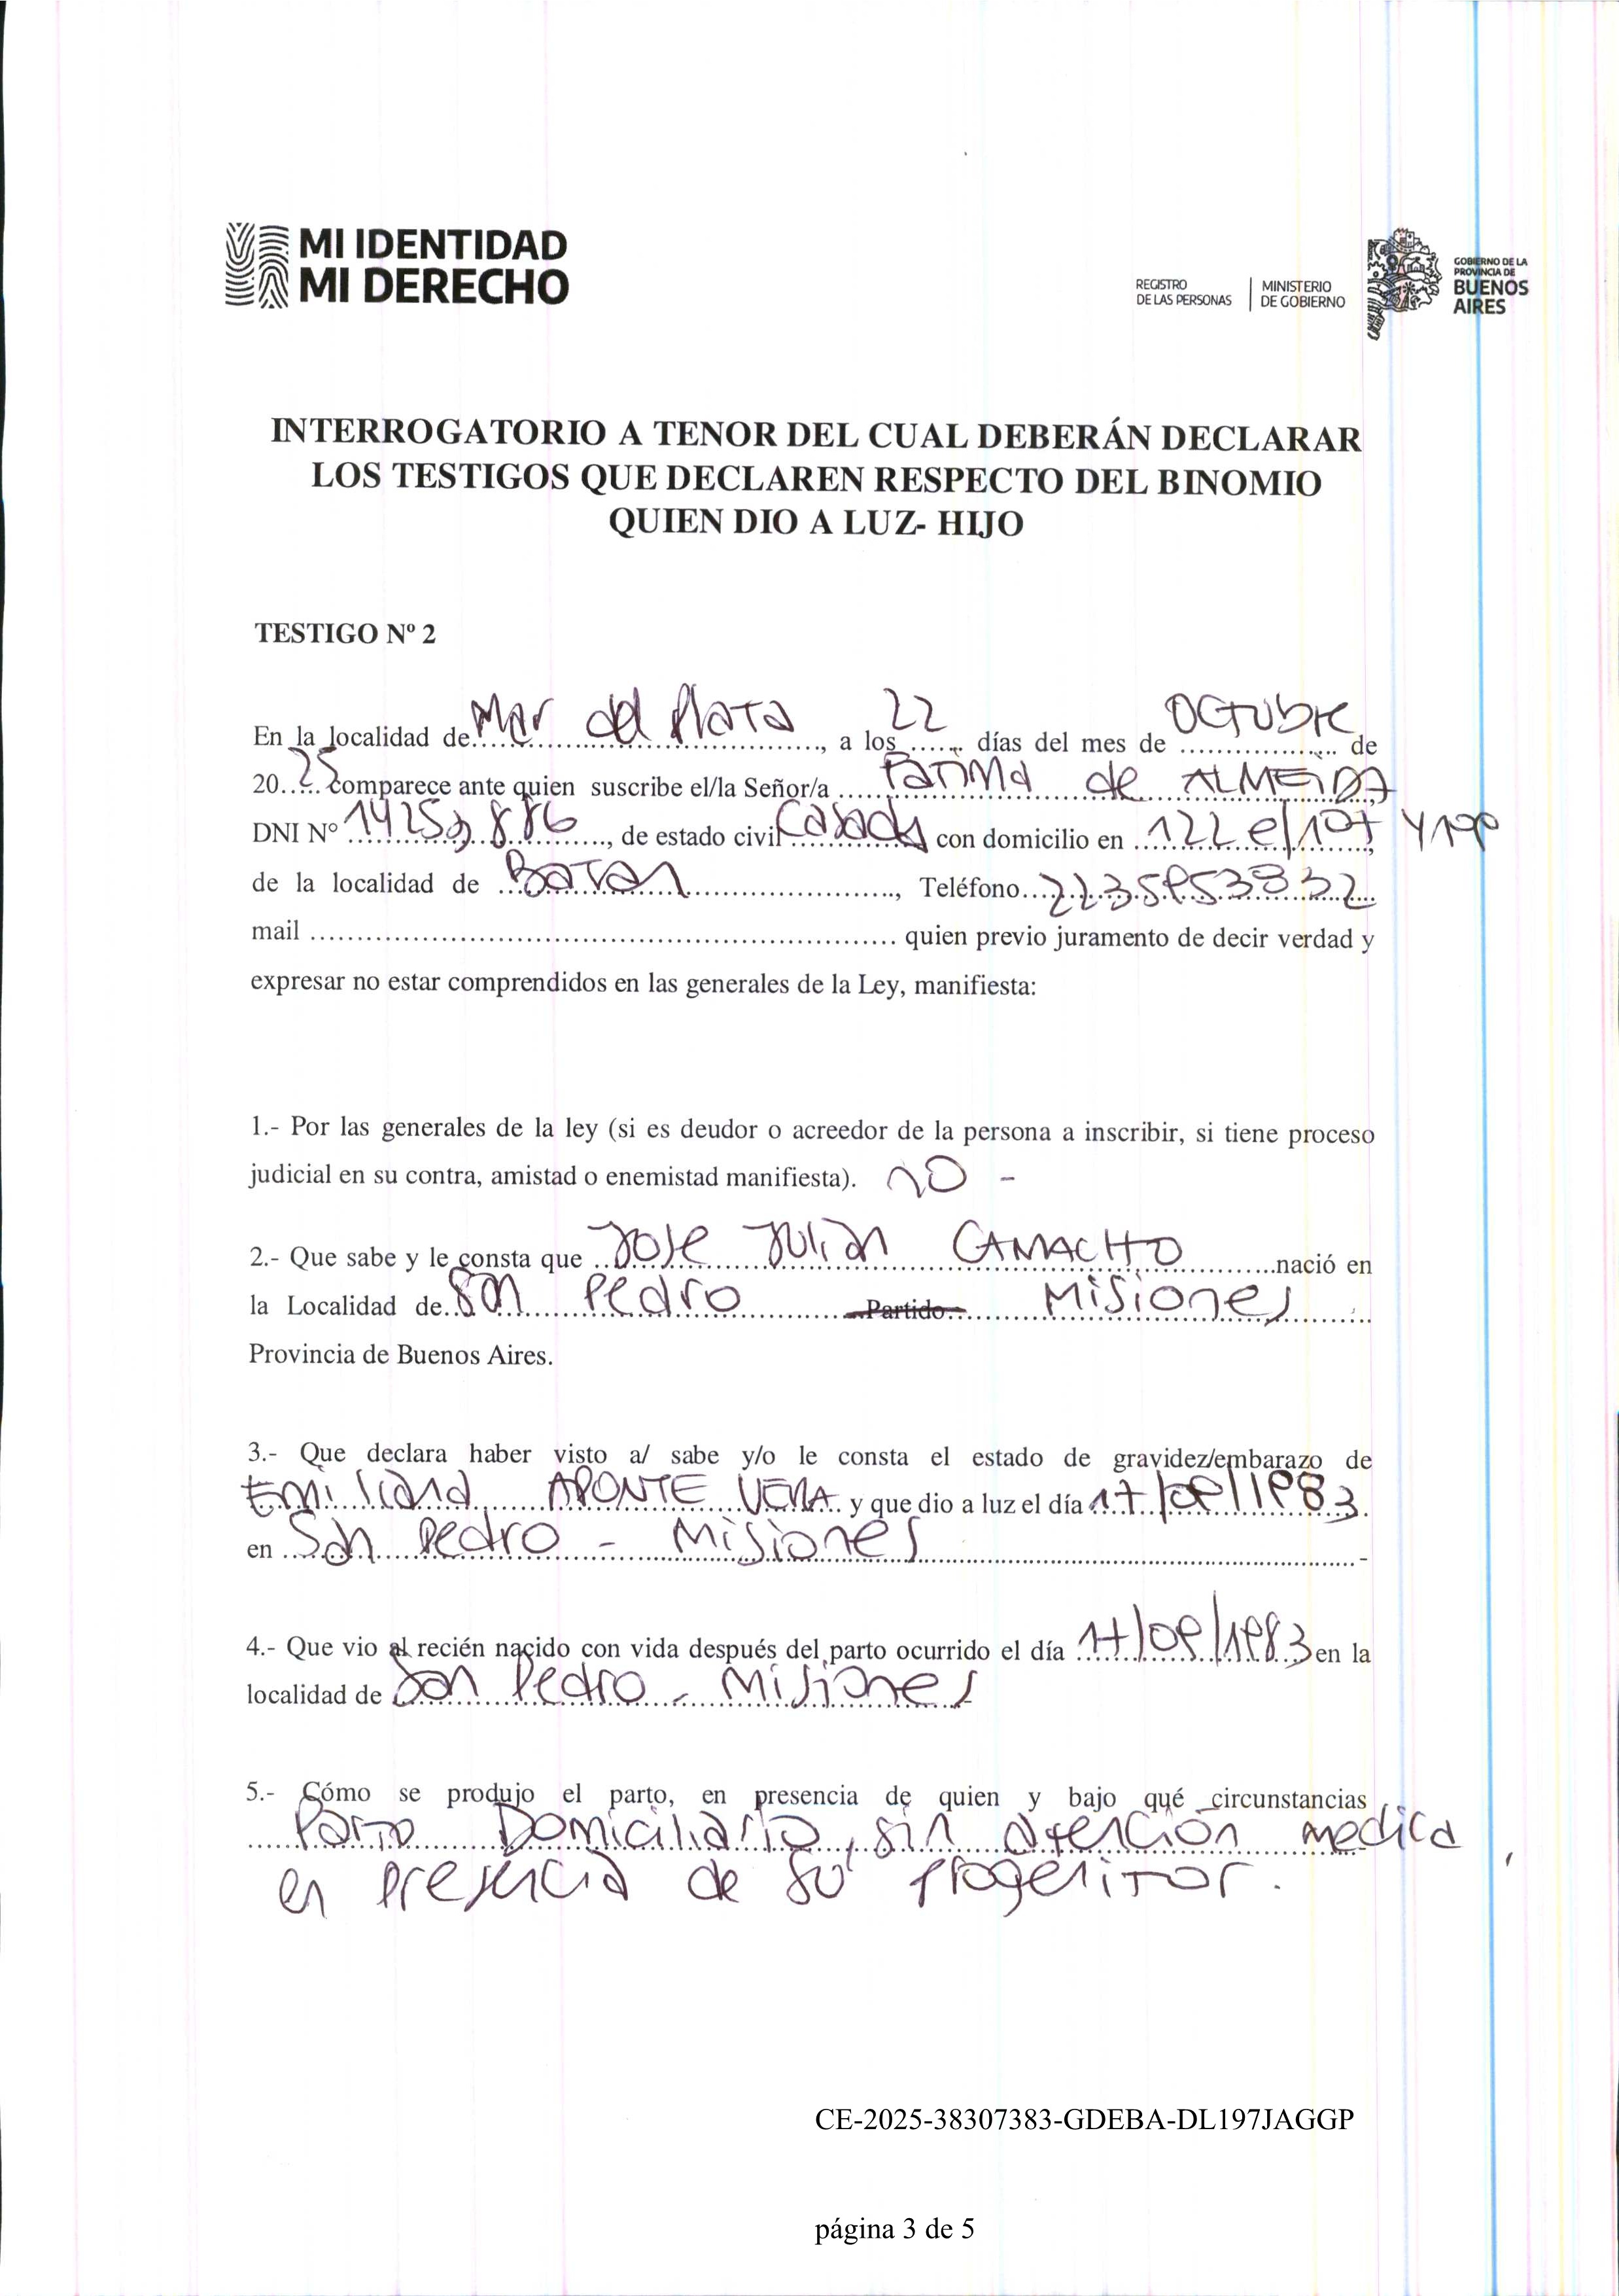 MI IDENTIDAD
MI DERECHO
REGISTRO
DE LAS PERSONAS
MINISTERIO
DE GOBIERNO
GOBIERNO DE LA
PROVINCIA DE
BUENOS
AIRES
INTERROGATORIO A TENOR DEL CUAL DEBERÁN DECLARAR
LOS TESTIGOS QUE DECLAREN RESPECTO DEL BINOMIO
QUIEN DIO A LUZ- HIJO
TESTIGO Nº 2
En la localidad de Mar del Plata, a los 22 días del mes de OCTUBRE de
20 25 comparece ante quien suscribe el/la Señor/a Fatima de ALMEIDA
DNI Nº, de estado civil Casada con domicilio en 122 e/107 y
de la localidad de Batan, Teléfono
mail quien previo juramento de decir verdad y
expresar no estar comprendidos en las generales de la Ley, manifiesta:
1.- Por las generales de la ley (si es deudor o acreedor de la persona a inscribir, si tiene proceso
judicial en su contra, amistad o enemistad manifiesta). NO -
2.- Que sabe y le consta que Jose Julian CAMACHO nació en
la Localidad de San Pedro Partido Misiones
Provincia de Buenos Aires.
3.- Que declara haber visto a/ sabe y/o le consta el estado de gravidez/embarazo de
Emiliana APONTE VERA y que dio a luz el día 17/09/1983.
en San Pedro - Misiones -
4.- Que vio al recién nacido con vida después del parto ocurrido el día 17/09/1983 en la
localidad de San Pedro - Misiones
5.- Cómo se produjo el parto, en presencia de quien y bajo qué circunstancias
Parto Domiciliario, sin atencion medica,
en presencia de su progenitor.
CE-2025-38307383-GDEBA-DL197JAGGP
página 3 de 5